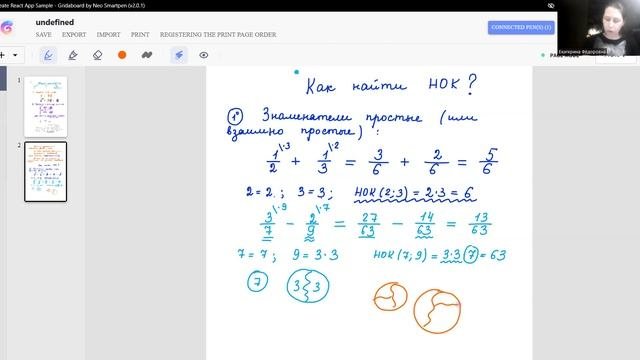 eate React App Sample - Gridaboard by Neo Smartpen (v2.0.1)
undefined
SAVE EXPORT IMPORT PRINT REGISTERING THE PRINT PAGE ORDER
CONNECTED PEN(S) (1)
Екатерина Фёдоровна
1
2
Как найти НОК?
1° Знаменатели простые (или
взаимно простые):
1/2 \·3 + 1/3 \·2 = 3/6 + 2/6 = 5/6
2 = 2 ; 3 = 3 ; НОК(2;3) = 2·3 = 6
3/7 \·9 - 2/9 \·7 = 27/63 - 14/63 = 13/63
7 = 7 ; 9 = 3·3 НОК(7;9) = 3·3·7 = 63
7 3 3